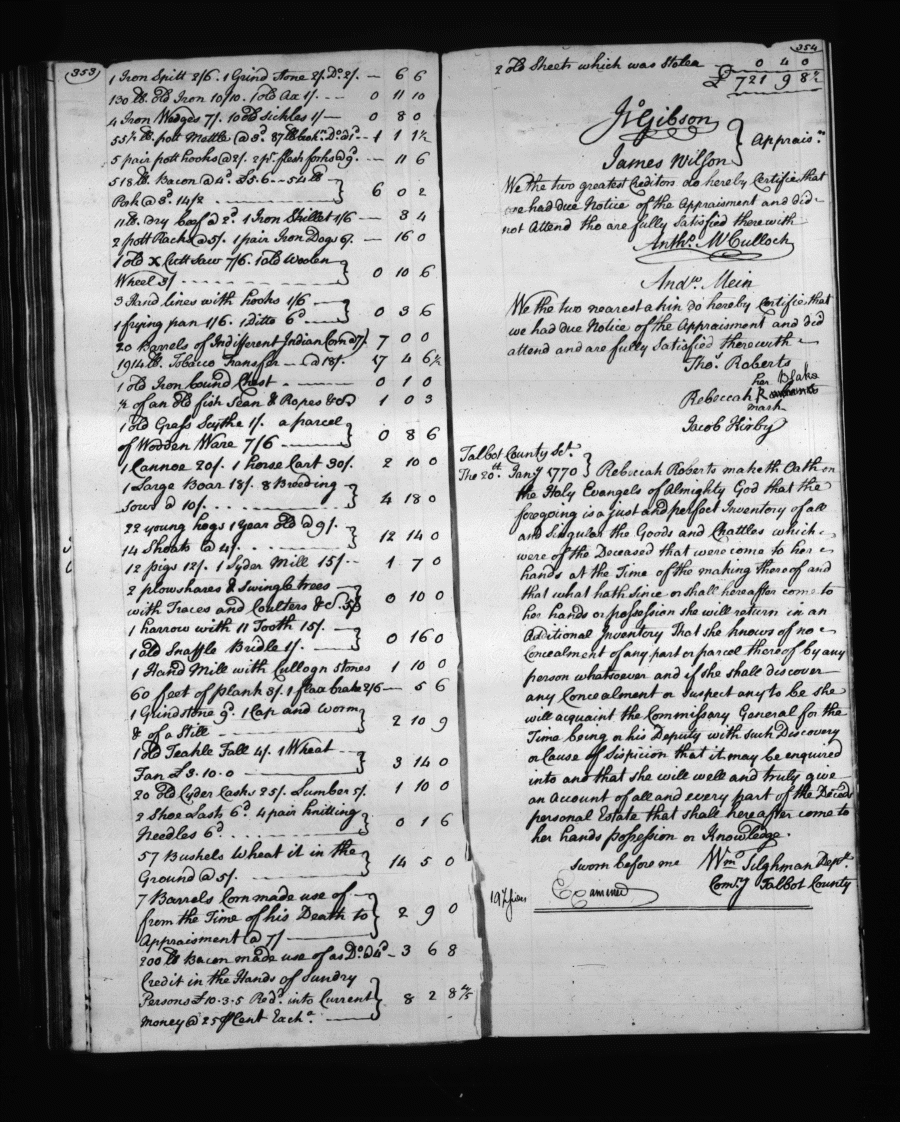 353
1 Iron Spitt 2/6. 1 Grind Stone 2/. Do. 2/. — 6 6
130 lb. Old Iron 10/10. 1 old Ax 1/. — 0 11 10
4 Iron Wedges 7/. 10 old Sickles 1/ — 0 8 0
55½ lb. pott Mettle @ 3d. 87 lb Do. @ 1d — 1 1 1½
5 pair pott hooks @ 2/. 2 pr. flesh forks @ 9d. — 11 6
518 lb. Bacon @ 4d. £5.6 — 54 lb
Pork @ 3d. 14/2 } 6 0 2
11 lb. dry beef @ 2d. 1 Iron Skillet 1/6 — 3 4
2 pott Racks @ 5/. 1 pair Iron Dogs 6/. — 16 0
1 old X Cutt Saw 7/6. 1 old Woolen
Wheel 3/ } 0 10 6
3 Hand lines with hooks 1/6
1 frying pan 1/6. 1 Ditto 6d } 0 3 6
20 Barrels of Indifferent Indian Corn @ 7/ 7 0 0
1914 lb. Tobacco Transfer — @ 18/. 17 4 6½
1 old Iron bound Chest 0 1 0
½ of an old fish Sean & Ropes &c 1 0 3
1 old Grass Scythe 1/. a parcel
of Wooden Ware 7/6 } 0 8 6
1 Cannoe 20/. 1 horse Cart 30/. 2 10 0
1 Large Boar 18/. 8 Breeding
Sows @ 10/. } 4 18 0
22 young hogs 1 year Old @ 9/.
14 Shoats @ 4/. } 12 14 0
12 pigs 12/. 1 Syder Mill 15/. 1 7 0
2 plowshares & Swingletrees
with Traces and Coulters &c. 5/ } 0 10 0
1 harrow with 11 Tooth 15/.
1 old Snaffle Bridle 1/. } 0 16 0
1 Hand Mill with Cullogn Stones 1 10 0
60 feet of plank 3/. 1 flax brake 2/6 — 5 6
1 Grindstone 9d. 1 Cap and Worm
& of a Still } 2 10 9
1 old Teakle Fall 4/. 1 Wheat
Fan £3.10.0 } 3 14 0
20 Old Cyder Casks 25/. Lumber 5/. 1 10 0
2 Shoe Lasts 6d. 4 pair knitting
Needles 6d. } 0 1 6
57 Bushels Wheat it in the
Ground @ 5/. } 14 5 0
7 Barrels Corn made use of
from the Time of his Death to
Appraisment @ 7/ } 2 9 0
200 lb Bacon made use of as Do. @ 4d — 3 6 8
Credit in the Hands of Sundry
Persons £10.3.5 Redd. into Current
money @ 25 ⅌ Cent Excha. } 8 2 8⅘
354
2 Old Sheets which was Stolen 0 4 0
£ 721 9 8½
Jo. Gibson
James Wilson } Apprais.rs
We the two greatest Creditors do hereby Certifie that
we had due Notice of the Appraisment and did
not Attend tho are fully Satisfied therewith
Antho. McCulloch
Andw. Mein
We the two nearest akin do hereby Certifie that
we had due Notice of the Appraisment and did
attend and are fully Satisfied therewith
Thos. Roberts
her Blake
Rebeccah R
mark
Jacob Hirby
Talbot County Sct.
The 20th. Jany 1770 } Rebeccah Roberts maketh Oath on
the Holy Evangels of Almighty God that the
foregoing is a just and perfect Inventory of all
and singular the Goods and Chattles which
were of the Deceased that were come to her
hands at the Time of the making thereof and
that what hath Since or shall hereafter come to
her hands or possession she will return in an
Additional Inventory That she knows of no
Concealment of any part or parcel thereof by any
person whatsoever and if she shall discover
any Concealment or Suspect any to be she
will acquaint the Commissary General for the
Time being or his Deputy with such Discovery
or Cause of Suspicion that it may be enquired
into and that she will well and truly give
an Account of all and every part of the Deceds
personal Estate that shall hereafter come to
her hands Possession or Knowledge.
Sworn before me Wm. Tilghman Depy.
Comy Talbot County
Examined